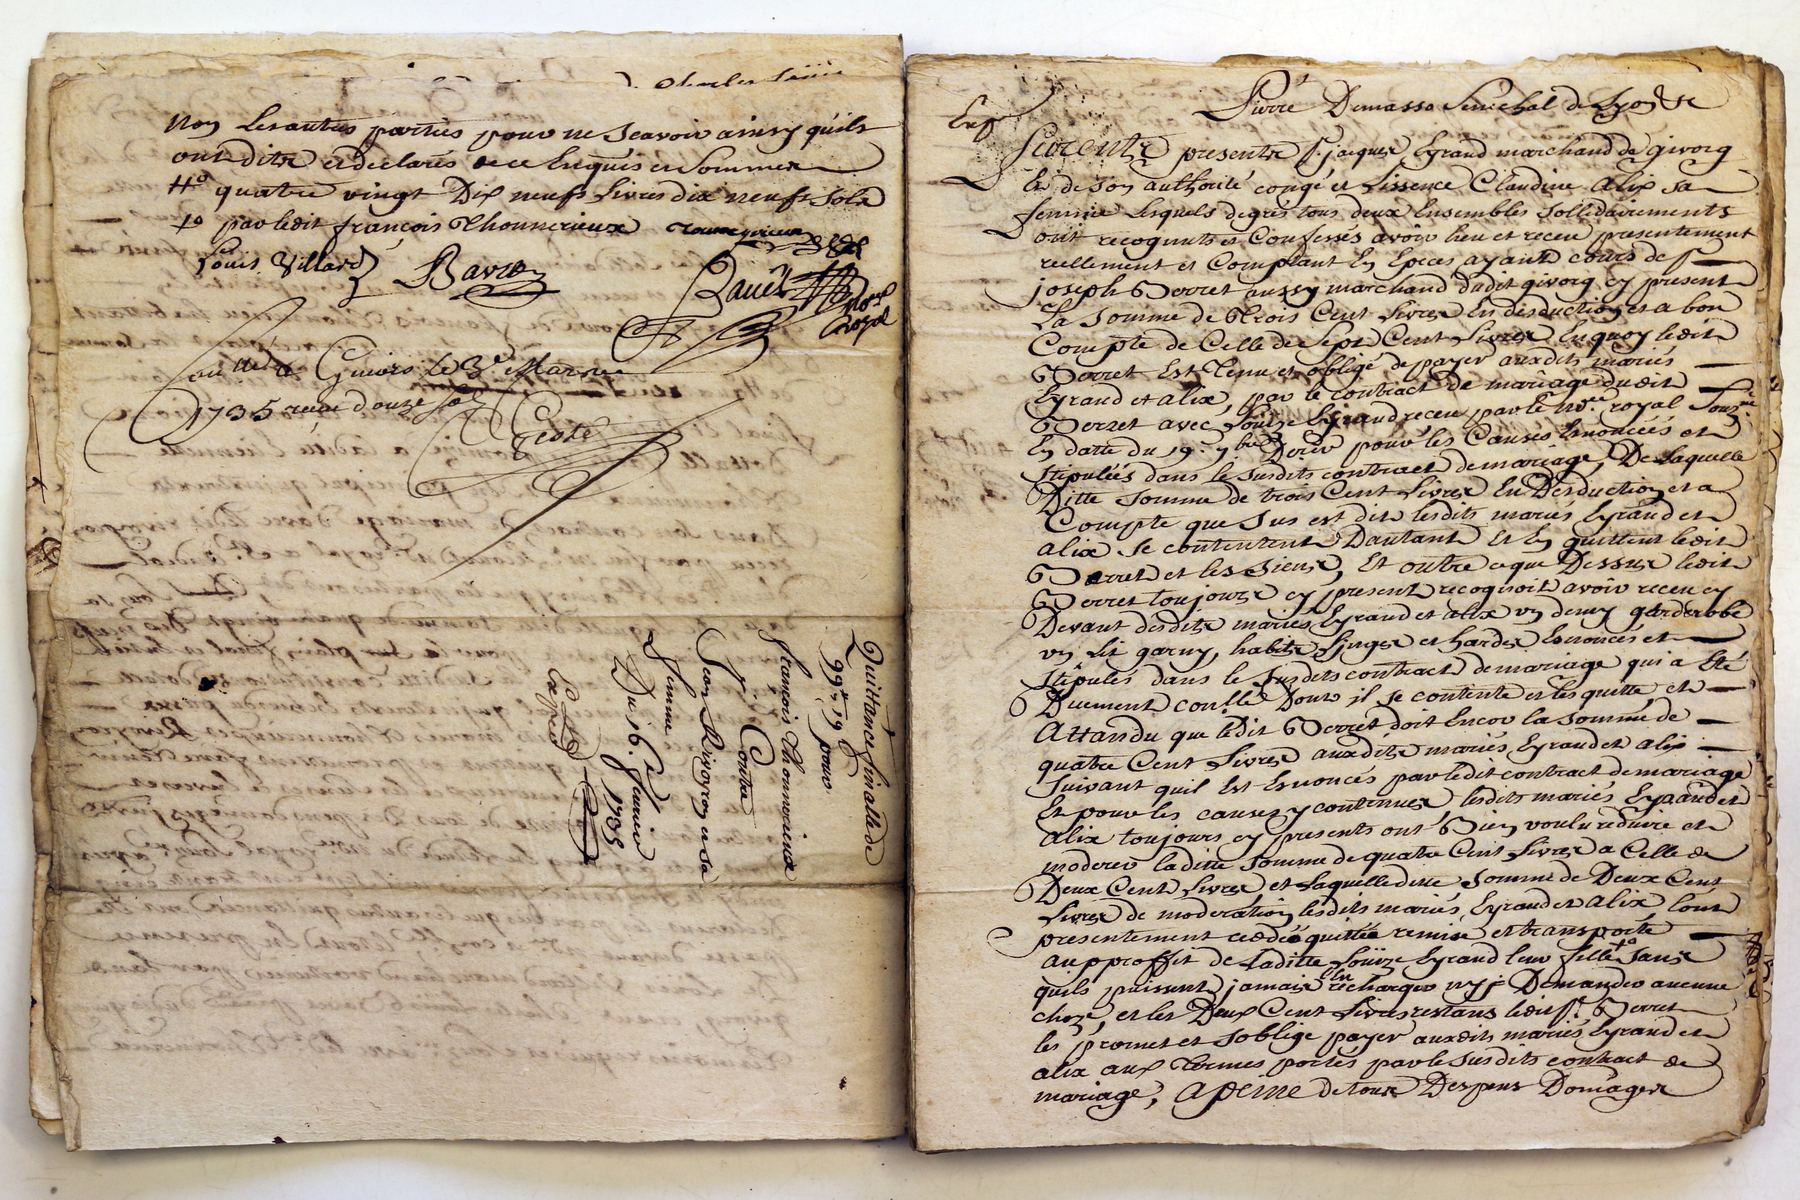 Charles
non les autres parties pour ne scavoir ainsy quils
ont ditx et declarés de ce Enquis en Sommex
Ho quatre vingt Dix neufs Livres dix neufs Sols
par ledit françois Thonnerieux
Louis Villard Bavet Bavet No.re Royal
Coullé a Givors le 3e Mars
1735 receu douze sols
Geste
Quittance finalle de
99tt 19s pour
françois Thonnerieux
Contre
Jean Rivoyron et sa
femme
Du 16e Janvier
1735
Expéd
Pierre Demasso Senechal de Lyon &c
Exp
Furent presentx sr. jacques Eyraud marchand de givorg
Et de son authorité congé et Lissence Claudine Alix sa
femme Lesquels de gré tous deux Ensembles sollidairements
ont recognuts et Confessés avoir heu et receu presentement
reellement et Comptant En Epeces ayant cours de sr
joseph Verret aussy marchand dudit givorg cy present
La Somme de Trois Cent Livres En desduction et a bon
Compte de Celle de Sept Cent Livres En quoy ledit
Verret Est Tenu et obligé de payer auxdits mariés
Eyraud et alix, par le contract de mariage dudit
Verret avec Louize Eyraud receu par le no.re royal Sous.né
En datte du 19e 7bre Der.er pour les Causes Enoncées et
stipulées dans le susdits contract de mariage, De Laquelle
Ditte somme de trois Cent Livres En Desduction et a
Compte que sus est dit lesdits mariés Eyraud et
alix se contentent Dautant Et En quittent ledit
Verret et les siens, Et outre ce que Dessus ledit
Verret toujours cy present recognoit avoir receu cy
Devant desdits mariés Eyraud et alix un demy garderobbe
un Lit garny, habits Linges et hardes Enoncés et
stipulés dans le susdits contract de mariage qui a Eté
Duement coullé Dont il se contente et les quitte et
Attandu que ledit Verret doit Encor la Somme de
quatre Cent Livres auxdits mariés Eyraud et alix
suivant quil Est Enoncés par ledit contract de mariage
Et pour les causes y contenues lesdits mariés Eyraud et
alix toujours cy presents ont Bien voulu reduire et
moderer laditte somme de quatre Cent Livres a Celle de
Deux Cent Livres et Laquelle ditte Somme de Deux Cent
Livres de moderation lesdits mariés Eyraud et alix lont
presentement ceddée quittée remise et transporté
au proffit de Laditte Louize Eyraud leur fille sans
quils puissent jamais En rechargés ny Demander aucune
choze, et les Deux Cent Livres restans ledit sr. Verret
les promet et soblige payer auxdits mariés Eyraud et
alix aux Termes portés par le susdits contract de
mariage, a peine de tous Despens Domages